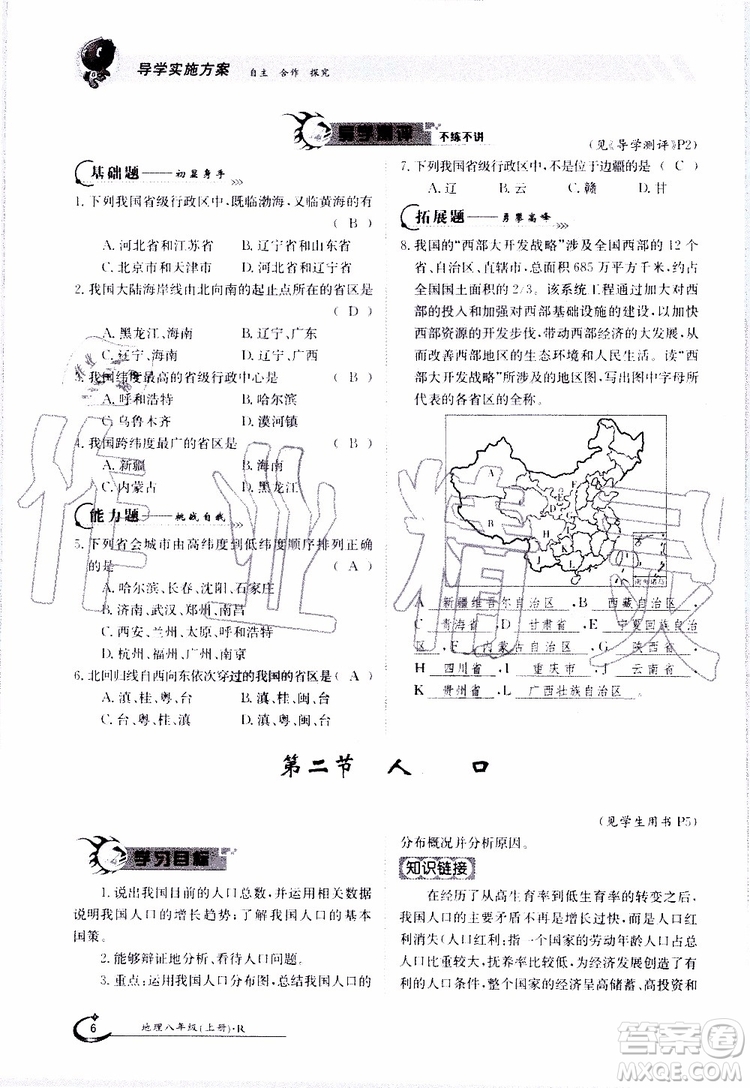 导学实施方案 自主 合作 探究
导学测评 不练不讲
(见《导学测评》P2)
基础题——初显身手
1. 下列我国省级行政区中,既临渤海、又临黄海的有
( B )
A. 河北省和江苏省 B. 辽宁省和山东省
C. 北京市和天津市 D. 辽宁省和河北省
2. 我国大陆海岸线由北向南的起止点所在的省区是
( D )
A. 黑龙江、海南 B. 辽宁、广东
C. 辽宁、海南 D. 辽宁、广西
3. 我国纬度最高的省级行政中心是 ( B )
A. 呼和浩特 B. 哈尔滨
C. 乌鲁木齐 D. 漠河镇
4. 我国跨纬度最广的省区是 ( B )
A. 新疆 B. 海南
C. 内蒙古 D. 黑龙江
能力题——挑战自我
5. 下列省会城市由高纬度到低纬度顺序排列正确
的是 ( A )
A. 哈尔滨、长春、沈阳、石家庄
B. 济南、武汉、郑州、南昌
C. 西安、兰州、太原、呼和浩特
D. 杭州、福州、广州、合肥
6. 北回归线自西向东依次穿过的我国的省区是( A )
A. 滇、桂、粤、台 B. 滇、桂、闽、台
C. 台、粤、桂、滇 D. 台、闽、粤、桂
7. 下列我国省级行政区中,不是位于边疆的是 ( C )
A. 辽 B. 云 C. 赣 D. 甘
拓展题——勇攀高峰
8. 我国的“西部大开发战略”涉及全国西部的 12 个
省、自治区、直辖市,总面积 685 万平方千米,约占
全国国土面积的 2/3。该系统工程包括加大对西
部的投入和加强对西部基础设施的建设,以加快
西部资源的开发步伐,带动西部经济的大发展,从
而改善西部地区的生态环境和人民生活。读“西
部大开发战略”所涉及的地区图,写出图中字母所
代表的各省区的全称。
A 新疆维吾尔自治区、B 西藏自治区、
C 青海省、D 甘肃省、E 宁夏回族自治
区、F 内蒙古自治区、G 陕西省、
H 四川省、I 重庆市、J 云南省、
K 贵州省、L 广西壮族自治区。
第二节 人 口
(见学生用书 P5)
学习目标
1. 说出我国目前的人口总数,并能运用相关数据
说明我国人口的增长趋势;了解我国人口的基本
国策。
2. 能够辩证地分析、看待人口问题。
3. 重点:运用我国人口分布图,总结我国人口的
分布概况并分析原因。
知识链接
在经历了从高生育率到低生育率的转变之后,
我国人口的主要矛盾不再是增长过快,而是人口红
利消失(人口红利:指一个国家的劳动年龄人口占总
人口比重较大,抚养率比较低,为经济发展创造了有
利的人口条件,整个国家的经济成高储蓄、高投资和
6 地理八年级(上册)·R